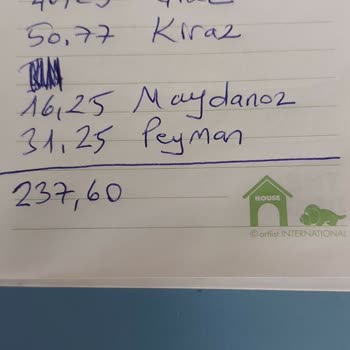 50,77 Kiraz
16,25 Maydanoz
31,25 Peyman
237,60
HOUSE
© artlist INTERNATIONAL